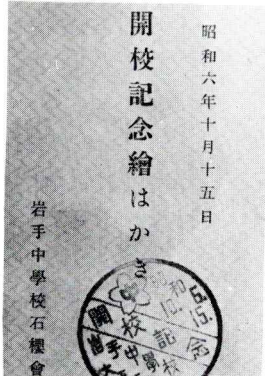 昭和六年十月十五日
開校記念繪はかき
岩手中學校石櫻會
昭和
10.15.
開校記念
岩手中學校